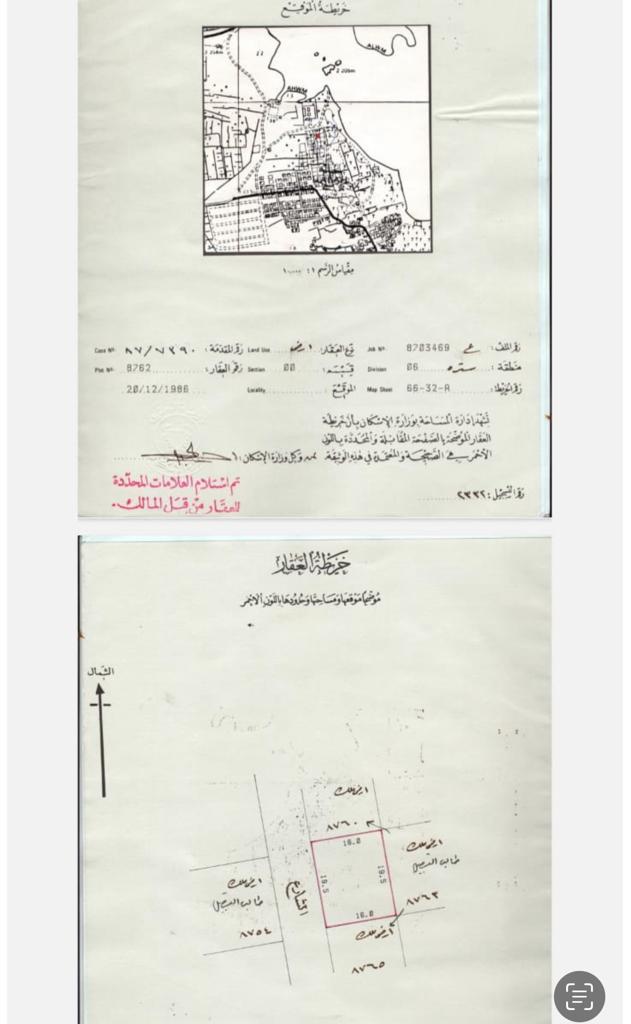 خريطة الموقع
مقياس الرسم ١ : ١٠٠٠٠
رقم الملف : ع 8703469 Job Nº نوع العقار : ارض Land Use رقم المقدمة : ٨٧/٧٣٩٠ Case Nº
منطقة : ستره 06 Division قسيمة : 00 Section رقم العقار : 8762 Plot Nº
رقم الخريطة : 66-32-R Map Sheet الموقع : Locality 20/12/1986
تشهد ادارة المساحة بوزارة الاسكان بأن خريطة
العقار الموضحة بالصفحة المقابلة والمحددة باللون
الأحمر هي الصحيحة والمعتمدة في هذه الوثيقة. عن وكيل وزارة الإسكان
تم استلام العلامات المحددة
للعقار من قبل المالك.
رقم التسجيل : ٢٣٣٢
خريطة العقار
موضحا موقعها ومساحتها وحدودها باللون الاحمر
الشمال
ارض ملك
٨٧٦٠
16.0
ارض ملك
طالب التسجيل
٨٧٦٣
19.5
19.5
الشارع
ارض ملك
طالب التسجيل
٨٧٥٤
16.0
ارض ملك
٨٧٦٥